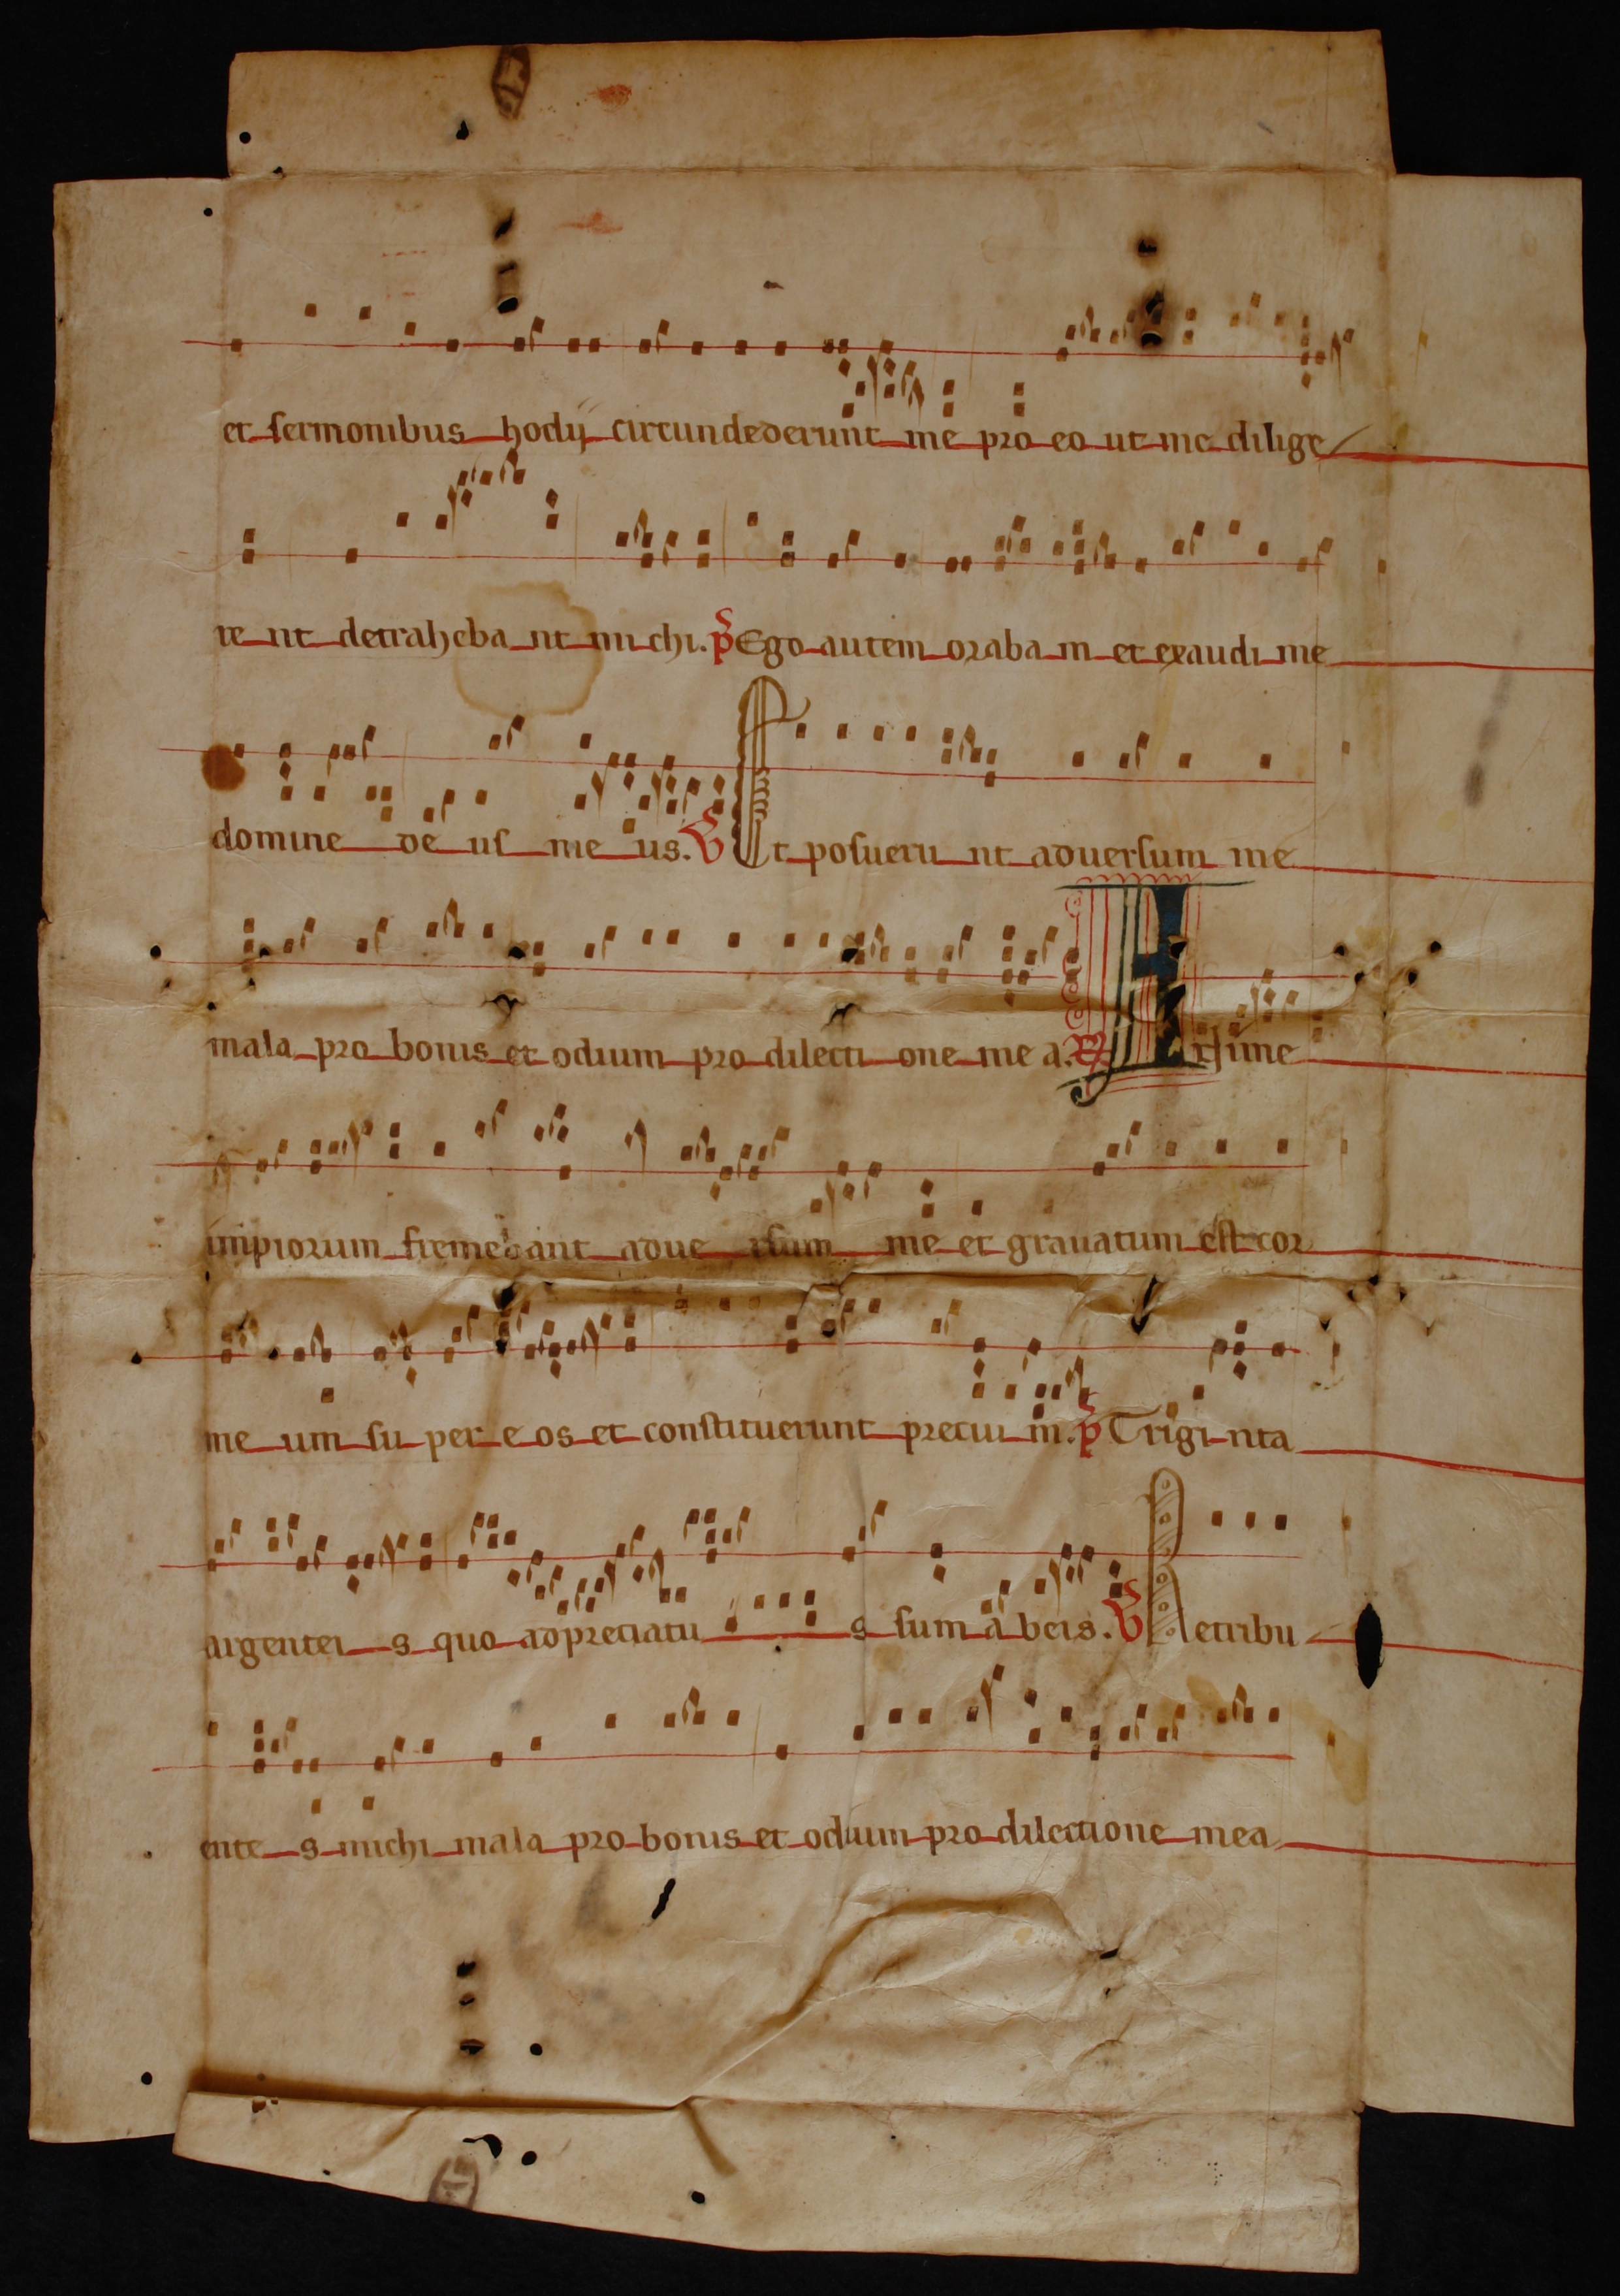 et sermonibus hodij circundederunt me pro eo ut me dilige
re nt detraheba nt mi chi. p Ego autem oraba m et exaudi me
domine de us me us. V Et posueru nt aduersum me
mala pro bonis et odium pro dilecti one me a. R
impiorum fremebant adue rsum me et grauatum est cor
me um su per e os et constituerunt preciu m. p Trigi nta
argentei s quo adpreciatu s sum a beis. V Retribu
ente s michi mala pro bonis et odium pro dilectione mea